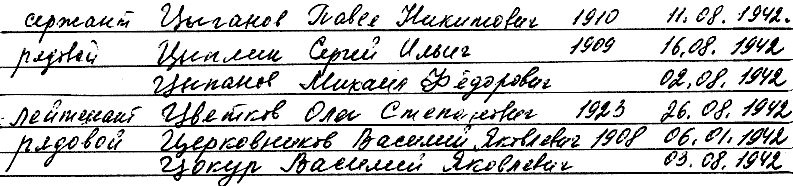 сержант Цыганов Павел Никитович 1910 11.08.1942.
рядовой Циплин Сергей Ильич 1909 16.08.1942
Ципанов Михаил Фёдорович 02.08.1942
лейтенант Цветков Олег Степанович 1923 26.08.1942
рядовой Церковников Василий Яковлевич 1908 06.01.1942
Цокур Василий Яковлевич 03.08.1942